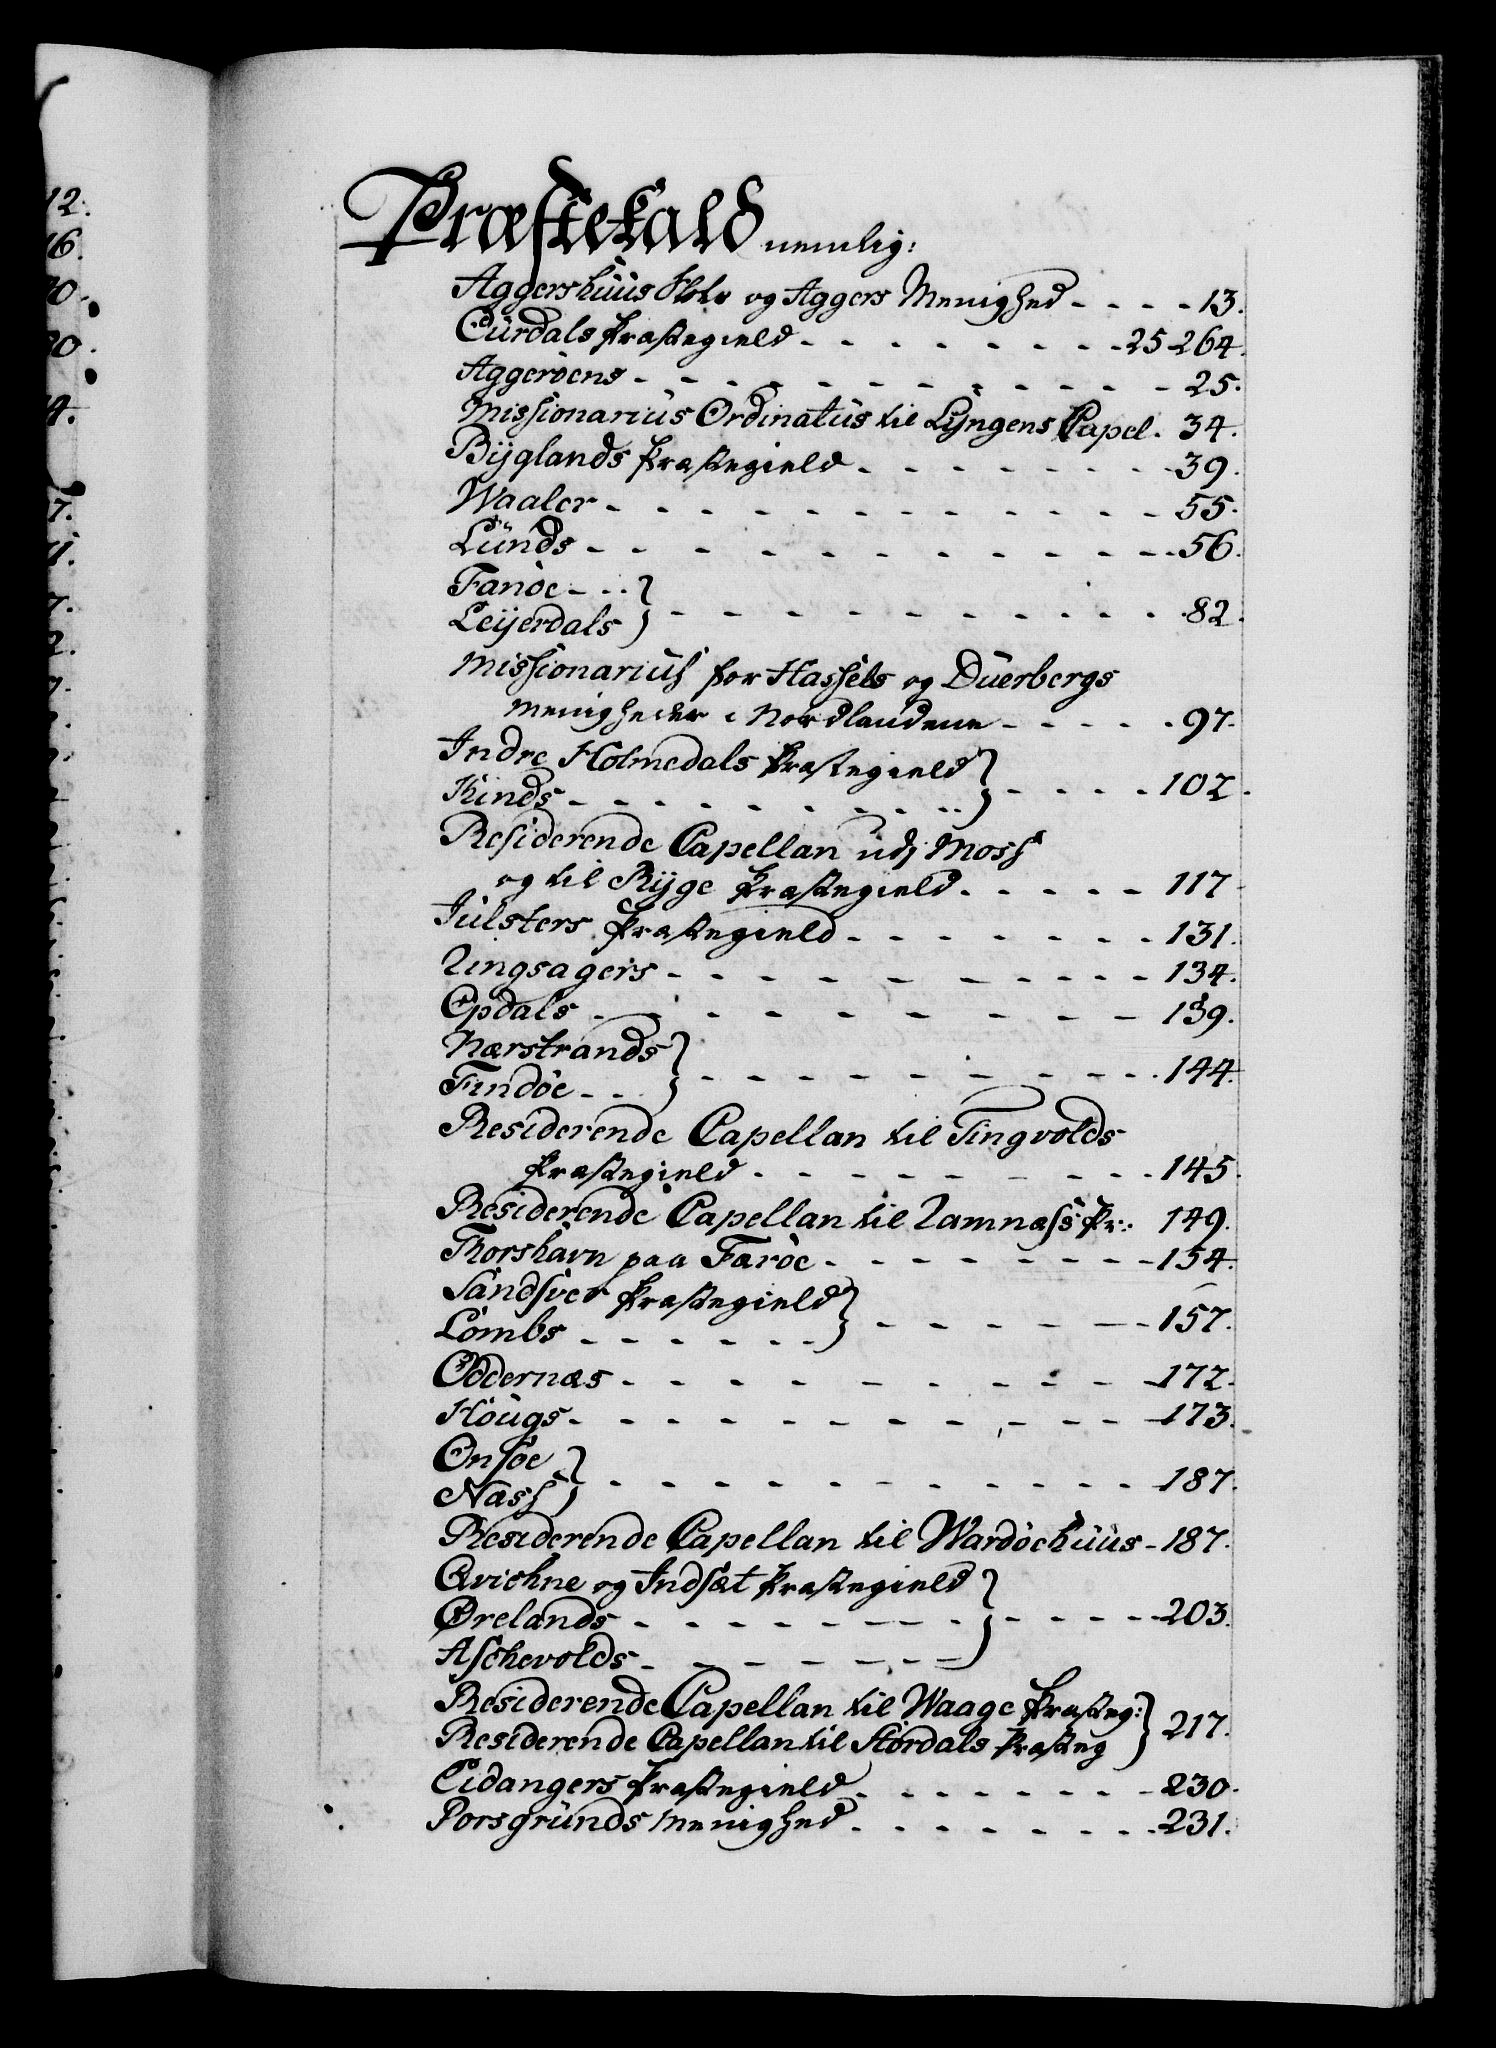 12.
16.
20.
30.
4.
7.
11.
7.
Præstekald nemlig:
Aggershuus Slots og Aggers Menighed - - - - 13.
Aurdals Præstegield - - - - - - - - 25-264.
Aggerøens - - - - - - - - - - - - 25.
Missionarius Ordinatus til Lyngens Capel. 34.
Byglands Præstegield - - - - - - - - 39.
Waaler - - - - - - - - - - - - 55.
Lunds - - - - - - - - - - - - 56.
Fanøe - - -
Leyerdals } - - - - - - - - - - 82.
Missionarius for Hassels og Duerbergs
Menigheder i Nordlandene - - - - - 97.
Indre Holmedals Præstegield
Kinds - - - - - - - - - } - - - - 102.
Residerende Capellan udj Moss
og til Ryge Præstegield - - - - - 117
Julsters Præstegield - - - - - - - 131.
Ringsagers - - - - - - - - - - - 134.
Opdals - - - - - - - - - - 139.
Nærstrands
Findöe - - - } - - - - - - - - - - 144.
Residerende Capellan til Tingvolds
Præstegield - - - - - - - - - 145.
Residerende Capellan til Ramnæss Pr: 149.
Thorshavn paa Færøe - - - - - - - - 154.
Sandsver Præstegield
Lombs - - - - - - } - - - - - - 157.
Oddernæs - - - - - - - - - 172.
Höugs - - - - - - - - - - - - 173.
Onsöe
Næss } - - - - - - - - - - - 187.
Residerende Capellan til Wardöehuus - 187.
Qvichne og Indsæt Præstegield
Ørelands - - - - - - - - } - - - - 203.
Aschevolds - - - - - - -
Residerende Capellan til Waage Præsteg:
Residerende Capellan til Størdals Præsteg } 217.
Eidangers Præstegield - - - - - - - 230.
Porsgrunds Menighed - - - - - - - 231.